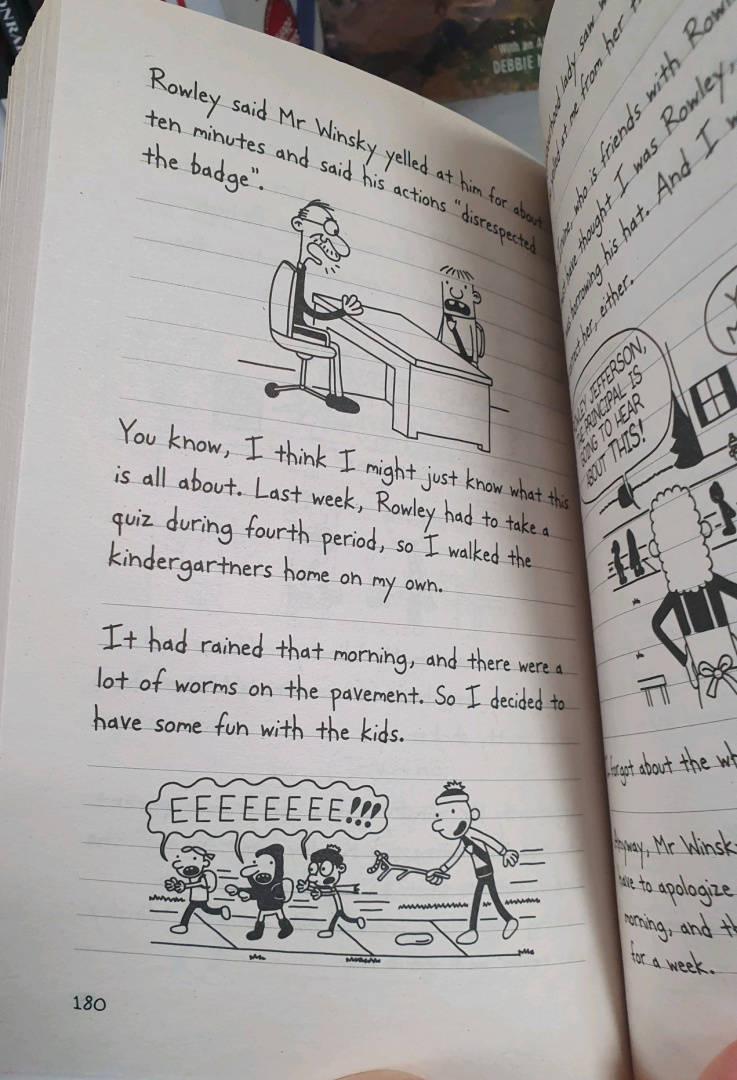 DEBBIE
Rowley said Mr Winsky yelled at him for about
ten minutes and said his actions "disrespected
the badge".
You know, I think I might just know what this
is all about. Last week, Rowley had to take a
quiz during fourth period, so I walked the
kindergartners home on my own.
It had rained that morning, and there were a
lot of worms on the pavement. So I decided to
have some fun with the kids.
EEEEEEEE!!!
180
lady saw
at me from her
who is friends with
have thought I was Rowley,
borrowing his hat. And I
her, either.
JEFFERSON,
PRINCIPAL IS
GOING TO HEAR
ABOUT THIS!
forgot about the
Mr
to apologize
morning, and
for a week.